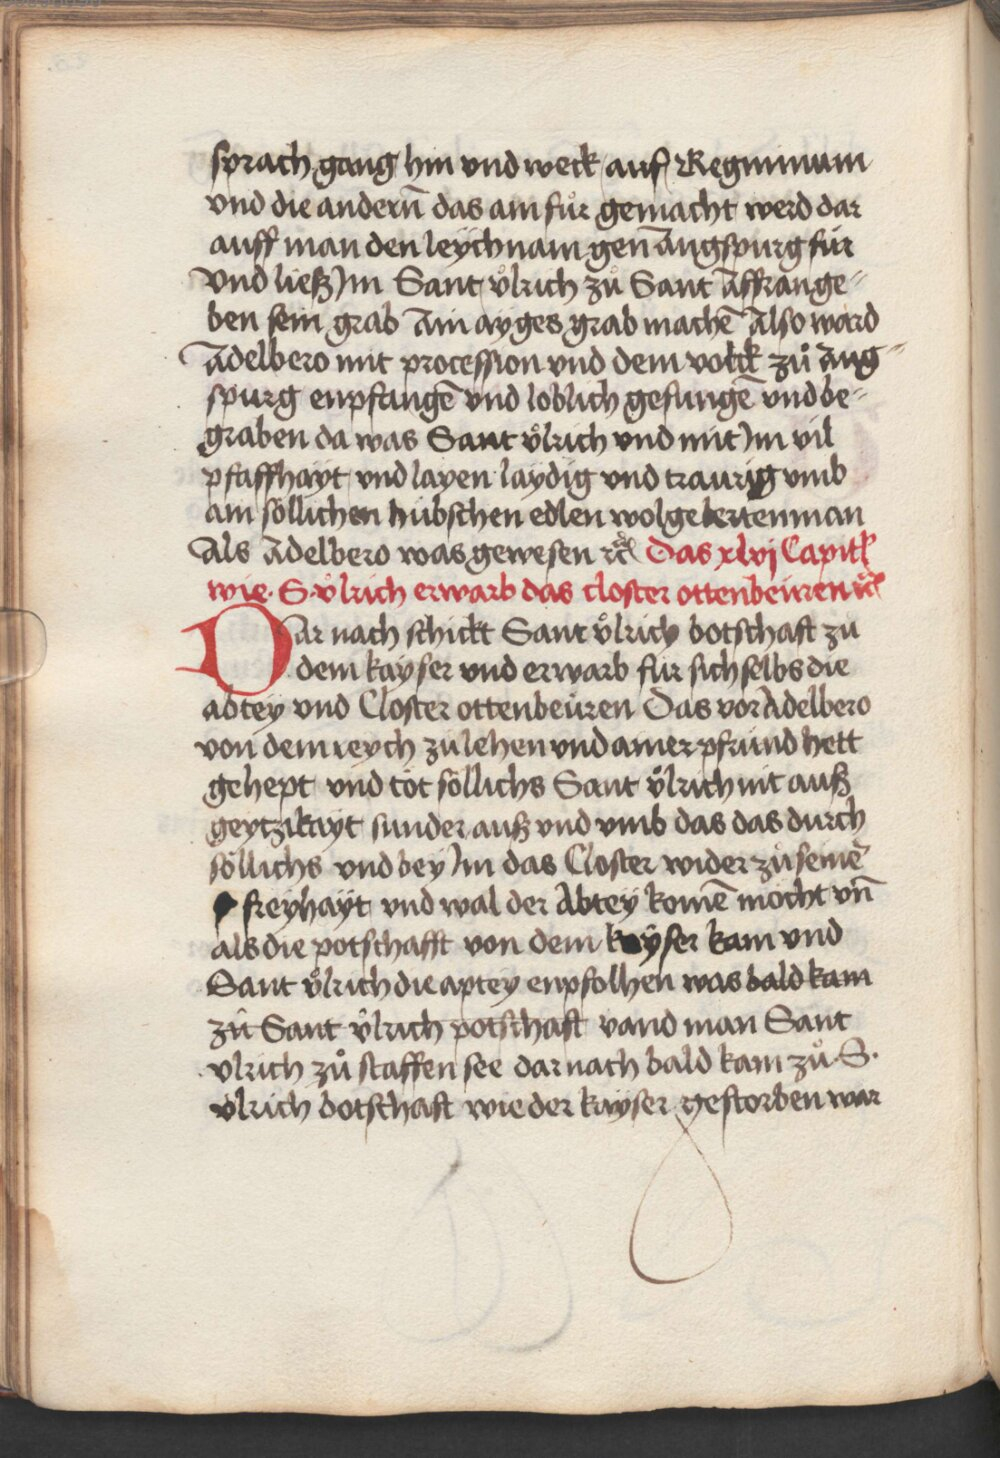 sprach gang hin vnd weck auf Reginimum
vnd die andern̄ das ain fůr gemacht werd dar
auff man den leychnam gen Augspurg für
vnd ließ Im Sant vͦlrich zů Sant Affran ge⸗
ben sein grab Ain ayges grab machē Also ward
Adelbero mit procession vnd dem volck zů Aug⸗
spurg enpfangē vnd loblich gesungē vnd be⸗
graben da was Sant vͦlrich vnd mit Im vil
pfaffhayt vnd layen laydig vnd traurig vmb
ain söllichen hübschen edlen wolgelerten man
Als Adelbero was gewesen ꝛc̄ Das xlvj Capitl
wie · S · vͦlrich erwarb das closter ottenbeüren ꝛc̄
Dar nach schickt Sant vͦlrich botschaft zu
dem kayser vnd erwarb für sich selbs die
abtey vnd Closter ottenbeüren Das vor Adelbero
von dem reych zu lehen vnd ainer pfründ hett
gehept vnd tot söllichs Sant vͦlrich nit auß
geytzikayt sunder auß vnd vmb das das durch
söllichs vnd bey Im das Closter wider zů seinē
freyhayt vnd wal der Abtey komē mocht vn̄
als die potschafft von dem kayser kam vnd
Sant vͦlrich die aptey enpfolhen was bald kam
zů Sant vͦlrich potschaft vand man Sant
vlrich zů staffensee dar nach bald kam zů · S ·
vͦlrich botschaft wie der kayser gestorben war